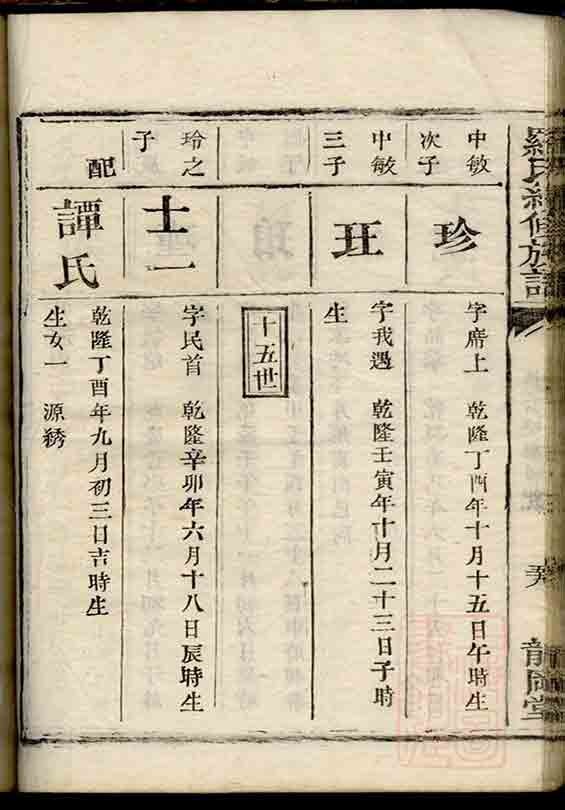 羅氏續修族譜
龍岡堂
中敏
次子
珍
字席上 乾隆丁酉年十月十五日午時生
中敏
三子
玨
字我遇 乾隆壬寅年十月二十三日子時
生
十五世
玲之
子
士一
字民首 乾隆辛卯年六月十八日辰時生
配
譚氏
乾隆丁酉年九月初三日吉時生
生女一 源綉